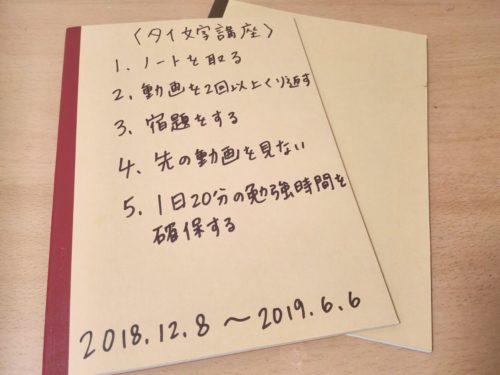 〈タイ文字講座〉
1. ノートを取る
2. 動画を2回以上くり返す
3. 宿題をする
4. 先の動画を見ない
5. 1日20分の勉強時間を
確保する
2018.12.8 〜 2019.6.6